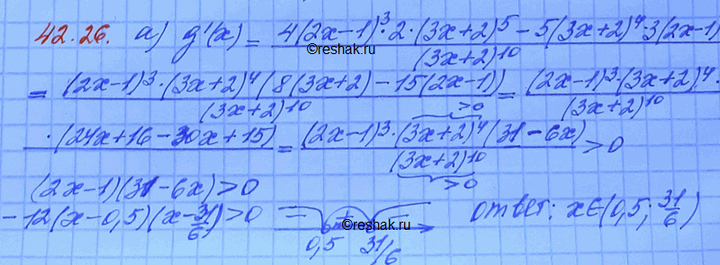 42.26. a) g'(x) = 4(2x-1)³·2·(3x+2)⁵ - 5(3x+2)⁴·3(2x-1) / (3x+2)¹⁰
©reshak.ru
= (2x-1)³·(3x+2)⁴(8(3x+2) - 15(2x-1)) / (3x+2)¹⁰ >0 = (2x-1)³·(3x+2)⁴· / (3x+2)¹⁰
·(24x+16-30x+15) = (2x-1)³·(3x+2)⁴(31-6x) / (3x+2)¹⁰ >0 >0
(2x-1)(31-6x)>0
-12(x-0,5)(x-31/6)>0 - + - ответ: x∈(0,5; 31/6)
©reshak.ru
0,5 31/6